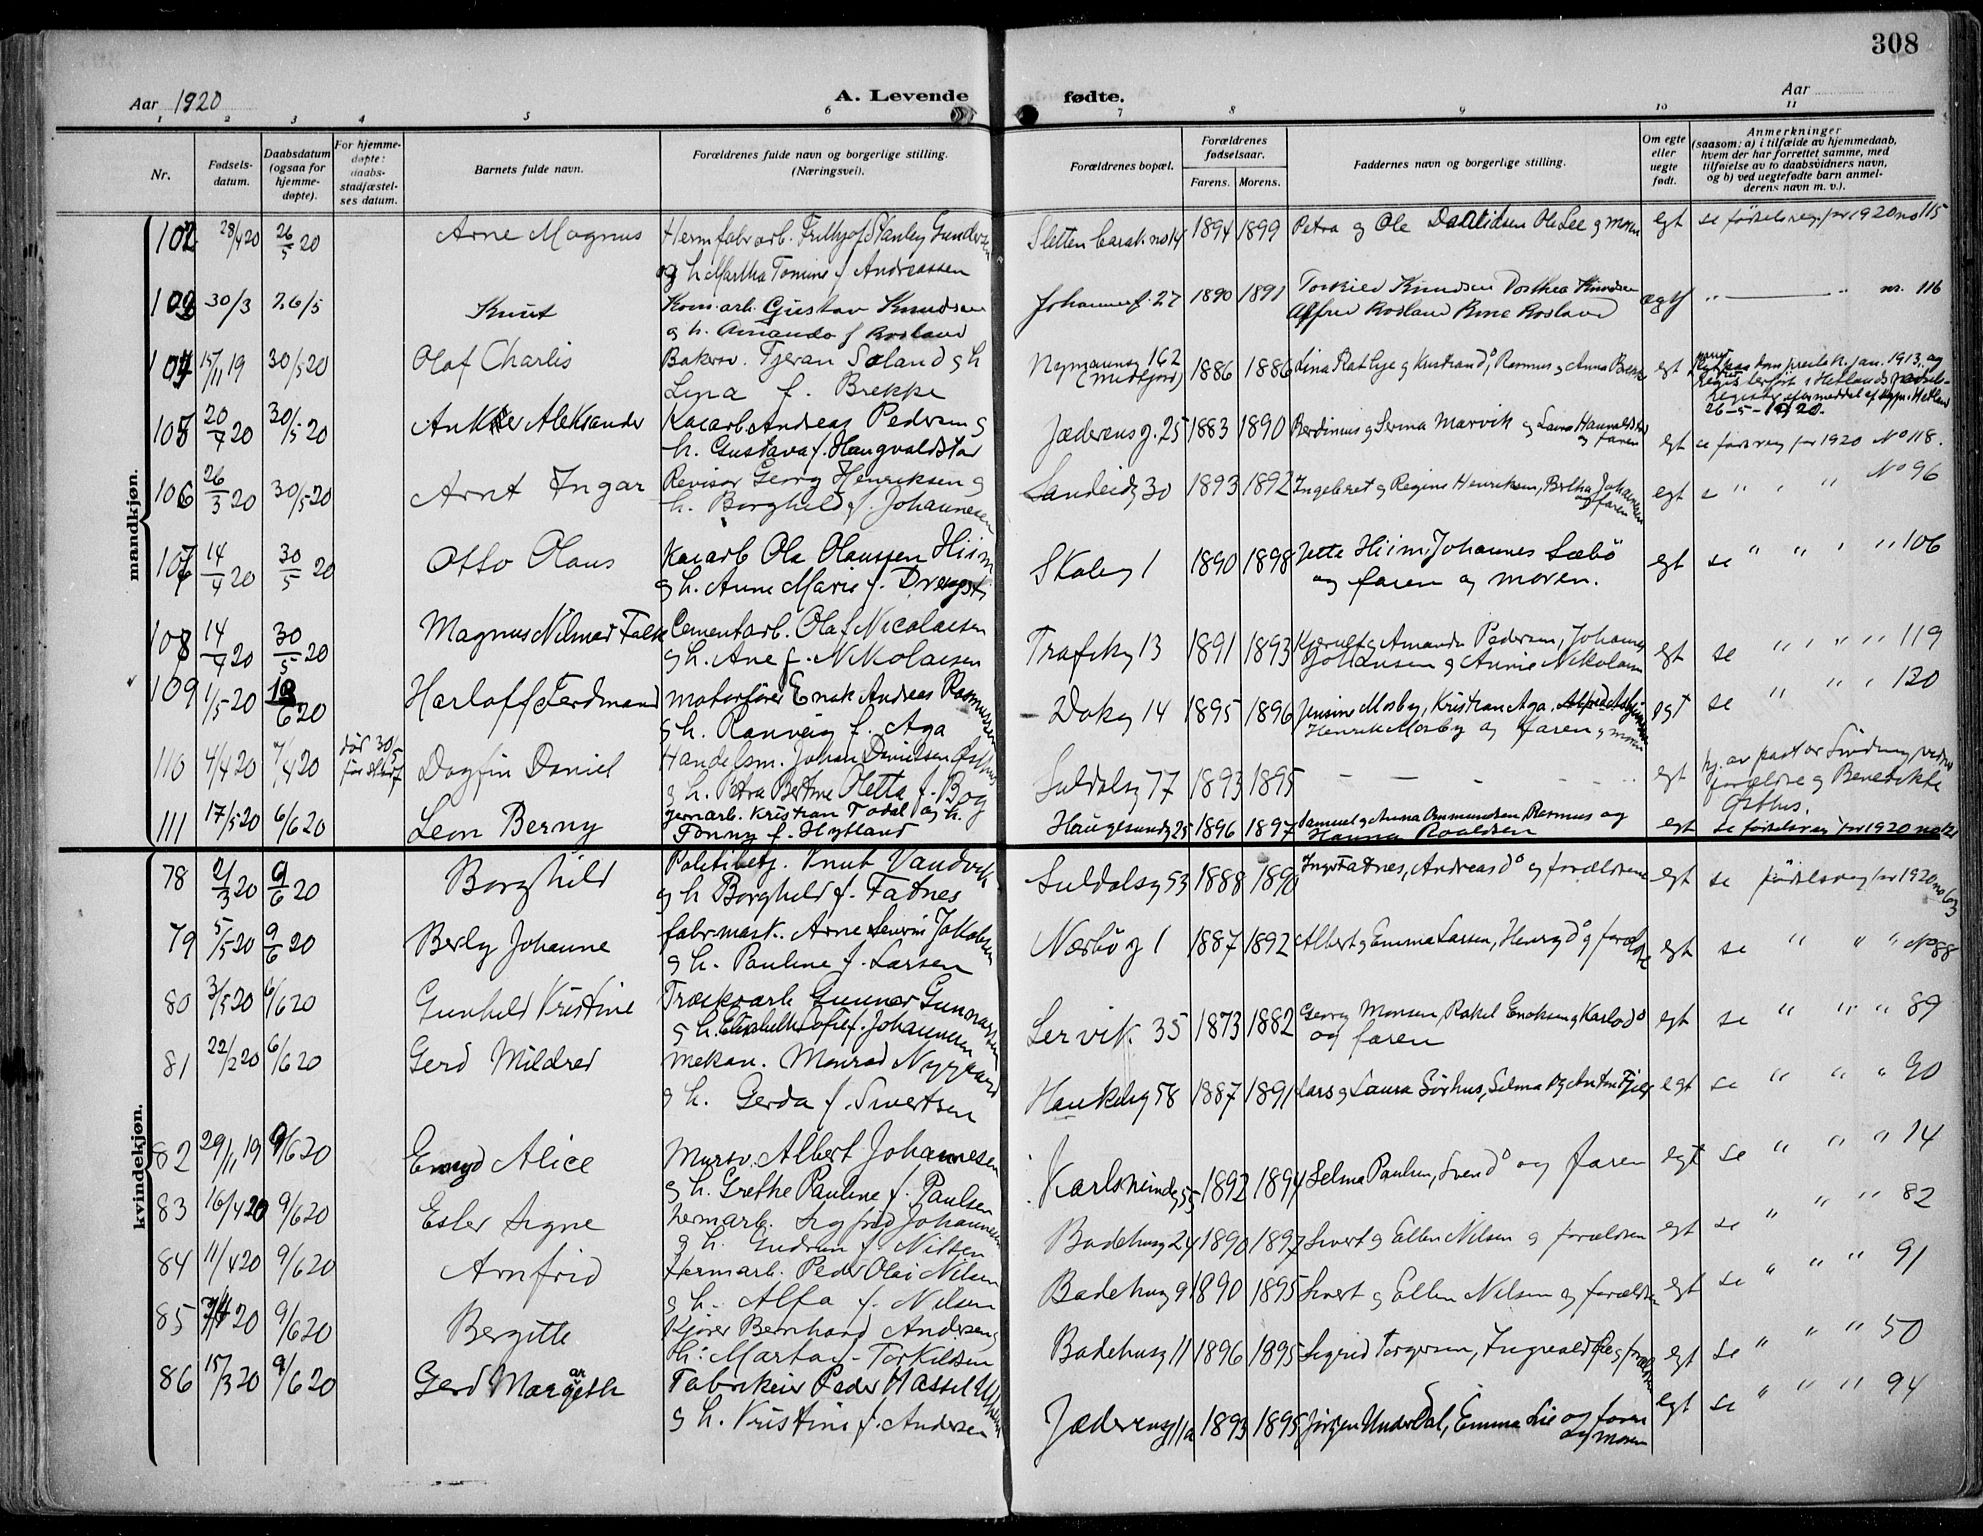 308
Aar 1920
A. Levende fødte.
Aar
1 2 3 4 5 6 7 8 9 10 11
Nr.
Fødsels-
datum.
Daabsdatum
(ogsaa for
hjemme-
døpte).
For hjemme-
døpte:
daabs-
stadfæstel-
ses datum.
Barnets fulde navn.
Forældrenes fulde navn og borgerlige stilling.
(Næringsvei).
Forældrenes bopæl.
Forældrenes
fødselsaar.
Farens. Morens.
Faddernes navn og borgerlige stilling.
Om egte
eller
uegte
født.
Anmerkninger
(saasom: a) i tilfælde av hjemmedaab,
hvem der har forrettet samme, med
tilføielse av to daabsvidners navn,
og b) ved uegtefødte barn anmel-
derens navn m. v.).
mandkjøn.
102 28/4 20 26/5 20 Arne Magnus Hermfabrarb. Frithjof Stanley Gundersen
og h. Martha Tomine f. Andreassen
Sletten barak no 14 1894 1899 Petra og Ole Davidsen Ole Lee og moren egt se fødselsreg. for 1920 no 115
103 30/3 26/5 Knut Kom. arb. Gustav Knudsen
og h. Amanda f. Rosland
Johannesg. 27 1890 1891 Torkild Knudsen Dorthea Knudsen
Alfred Rosland Rosland ægte " " nr. 116
104 15/11 19 30/5 20 Olaf Charlis Bakersv. Tjeran Søland og h
Lina f. Brekke
Nymannsg 162
(Midtfjord) 1886 1886 Lina og Kristian do Rasmus og Anna egt
26-5-1920.
105 20/4 20 30/5 20 Anker Aleksander Kaiarb Andreas Pedersen og
h. Gustava f. Haugvaldstad
Jæderensg. 25 1883 1890 Berdinius og Serina Marvik og Laura Haugvaldstad
og faren egt se føds reg for 1920 No 118.
106 26/3 20 30/5 20 Arnt Ingar Revisor Georg Henriksen og
h. Borghild f. Johannesen
Sandeidg 30 1893 1892 Ingebret og Regine Henriksen, Bertha Johannesen
og faren egt s " " " No 96
107 14/4 20 30/5 20 Otto Olaus Kaiarb Ola Olaussen Hiim
og h. Anne Marie f.
Skoleg 1 1890 1898 Jette Hiim Johannes Sæbö
og faren og moren. egt se " " " " 106
108 14/4 20 30/5 20 Magnus Hilmar Falk Cementarb. Olaf Nicolaisen
og h. Ane f. Nikolaisen
Trafikg 13 1891 1893 og Amanda Pedersen, Johannes
Johansen og Annie Nikolaisen egt se " " " " 119
109 1/5 20 6 20 Harloff Ferdinand Motorfører Enok Andreas Rasmussen
og h. Ranveig f. Aga
Dokg 14 1895 1896 Jensine Mosby, Kristian Aga,
Henrik Mosby og faren og moren egt se " " " 120
110 4/4 20 7/4 20 dør 30/5
før stadf Dagfin Daniel Handelsm. Johan Danielsen Østhus
og h. Petra Bertine Oletta f. Bog
Suldalsg 77 1893 1895 — — — — egt hj. av pastor Sindring, vidner
forældre og Benedikte
Østhus.
111 17/5 20 6/6 20 Leon Berny Jernarb. Kristian Todal og h.
Fanny f. Hytland
Haugesundg 25 1896 1897 Samuel og Anna Asmundsen Rasmus og
Hanna Roaldsen egt se fødselsreg for 1920 no 121
kvindekjøn.
78 2/3 20 9/6 20 Borghild Politibetj. Knut Vandvik
og h Borghild f. Fatnes
Suldalsg 53 1888 1890 Inga Fatnes, Andreas do og forældrene egt se fødselsreg for 1920 no 63
79 5/5 20 9/6 20 Berly Johanne fabr. mask. Arne Severin Jakobsen
og h. Pauline f. Larsen
Nærbö g 1 1887 1892 Albert og Emma Larsen, Henry do og forældre egt se " " " No 88
80 3/5 20 6/6 20 Gunhild Kristine Træskoarb Gunnar Gunnarsen
og h. Elisabeth Sofie f. Johannesen
Lervik. 35 1873 1882 Georg Monsen, Rakel Enoksen og Karl do
og faren egt se " " " 89
81 22/2 20 6/6 20 Gerd Mildred Mekan. Monrad Nygaard
og h. Gerda f. Sivertsen
Haukelig 58 1887 1891 Lars og Laura Sörhus, Selma og Anton egt se " " " 90
82 29/11 19 9/6 20 Enyd Alice Mursv. Albert Johannesen
og h. Grethe Pauline f. Paulsen
Karlsmindeg 55 1892 1894 Selma Paulsen, Svend do og faren egt se " " " 14
83 16/4 20 9/6 20 Esler Signe hermarb. Sigfrid Johannesen
og h. Gudrun f. Nilsen
Badehusg 24 1890 1897 Sivert og Ellen Nilsen og forældrene egt se " " " 82
84 11/4 20 9/6 20 Arnfrid Hermarb. Peder Olai Nilsen
og h. Alfa f. Nilsen
Badehusg 9 1890 1895 Sivert og Ellen Nilsen og forældrene egt se " " " 91
85 20 9/6 20 Bergitte Kjører Bernhard Andersen og
h: Marta f. Torkildsen
Badehusg 11 1896 1895 Sigrid Torgersen, Ingvald og forældre egt se " " " 50
86 15/3 20 9/6 20 Gerd Margareth Fabrikeier Peder Hassel
og h. Kristine f. Andersen
Jæderensg 11a 1893 1895 Jörgen Underdal, Emma Lie og faren
og moren egt se " " " 94